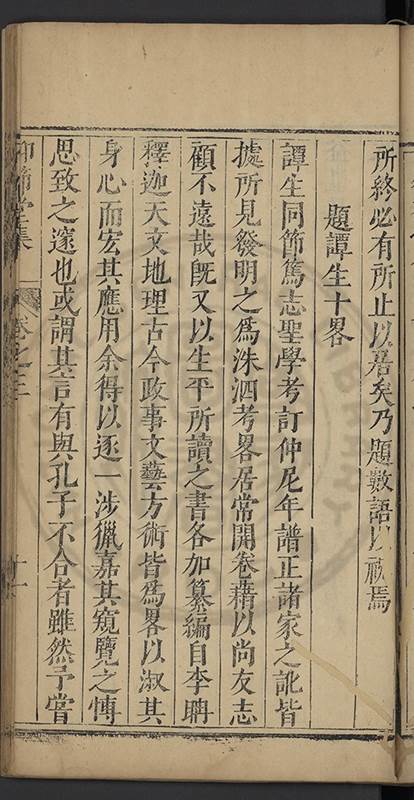 所終必有所止以居矣乃題數語以祝焉
題譚生十畧
譚生同節篤志聖學考訂仲尼年譜正諸家之訛皆
據所見發明之為洙泗考畧居常開卷藉以尚友志
顧不遠哉既又以生平所讀之書各加纂編自李聃
釋迦天文地理古今政事文藝方術皆為畧以淑其
身心而宏其應用余得以逐一涉獵嘉其窺覽之慱
思致之邃也或謂其言有與孔子不合者雖然予嘗
仰節堂集 卷之三 十一